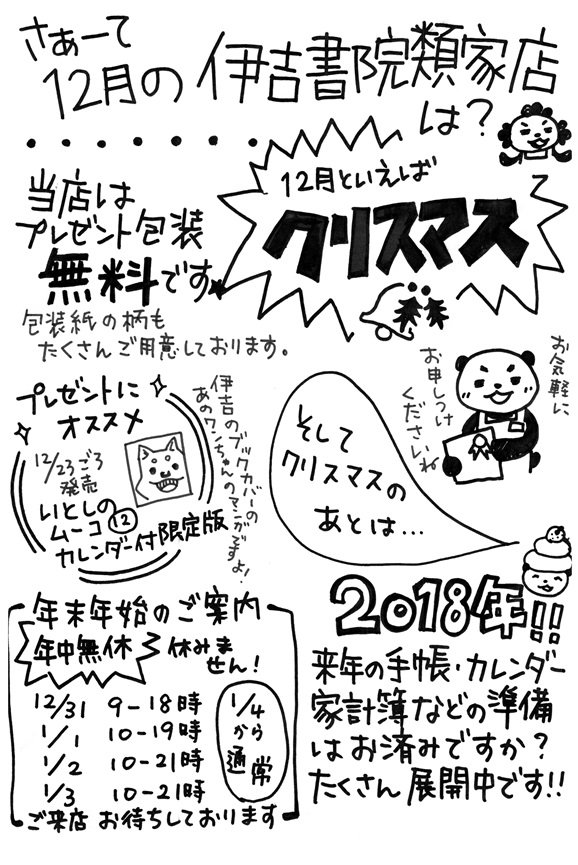 さぁーて
12月の 伊吉書院類家店
は?
・・・・・・・
12月といえば
クリスマス
当店は
プレゼント包装
無料です
包装紙の柄も
たくさんご用意しております。
お気軽に
お申しつけ
くださいね
プレゼントに
オススメ
12/23ごろ
発売
いとしの
ムーコ⑫
カレンダー付限定版
伊吉のブックカバーの
あのワンちゃんのマンガですよ!
そして
クリスマスの
あとは…
2018年!!
来年の手帳・カレンダー
家計簿などの準備
はお済みですか?
たくさん展開中です!!
年末年始のご案内
年中無休 休みま
せん!
12/31 9-18時
1/1 10-19時
1/2 10-21時
1/3 10-21時
1/4
から
通常
ご来店 お待ちしております